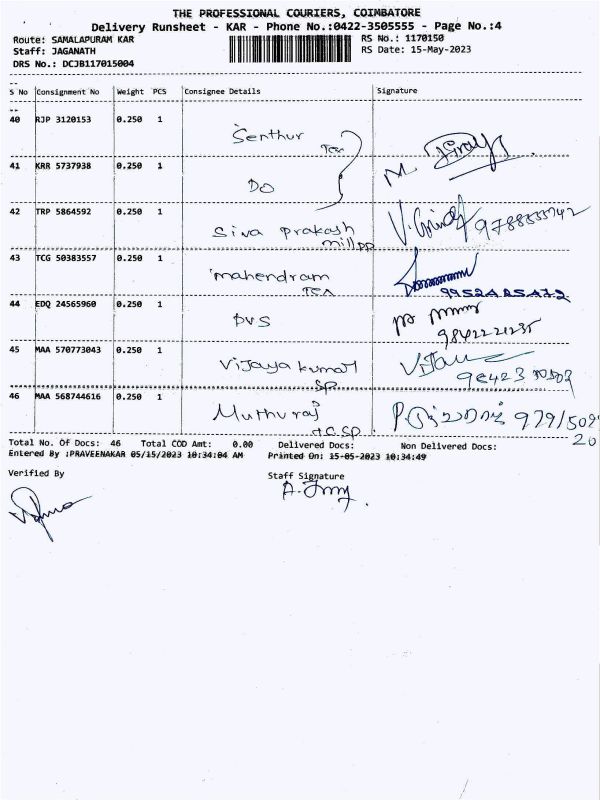 THE PROFESSIONAL COURIERS, COIMBATORE
Delivery Runsheet - KAR - Phone No.:0422-3505555 - Page No.:4
Route: SAMALAPURAM KAR RS No.: 1170150
Staff: JAGANATH RS Date: 15-May-2023
DRS No.: DCJB117015004
S No Consignment No Weight PCS Consignee Details Signature
40 RJP 3120153 0.250 1
Senthur
41 KRR 5737938 0.250 1
DO
42 TRP 5864592 0.250 1
Siva prakash
mill pp
43 TCG 50383557 0.250 1
mahendram
44 EDQ 24565960 0.250 1
DVS
45 MAA 570773043 0.250 1
Vijaya kumar
SP
46 MAA 568744616 0.250 1
Muthuraj
Total No. Of Docs: 46 Total COD Amt: 0.00 Delivered Docs: Non Delivered Docs:
Entered By :PRAVEENAKAR 05/15/2023 10:34:04 AM Printed On: 15-05-2023 10:34:49
Verified By Staff Signature